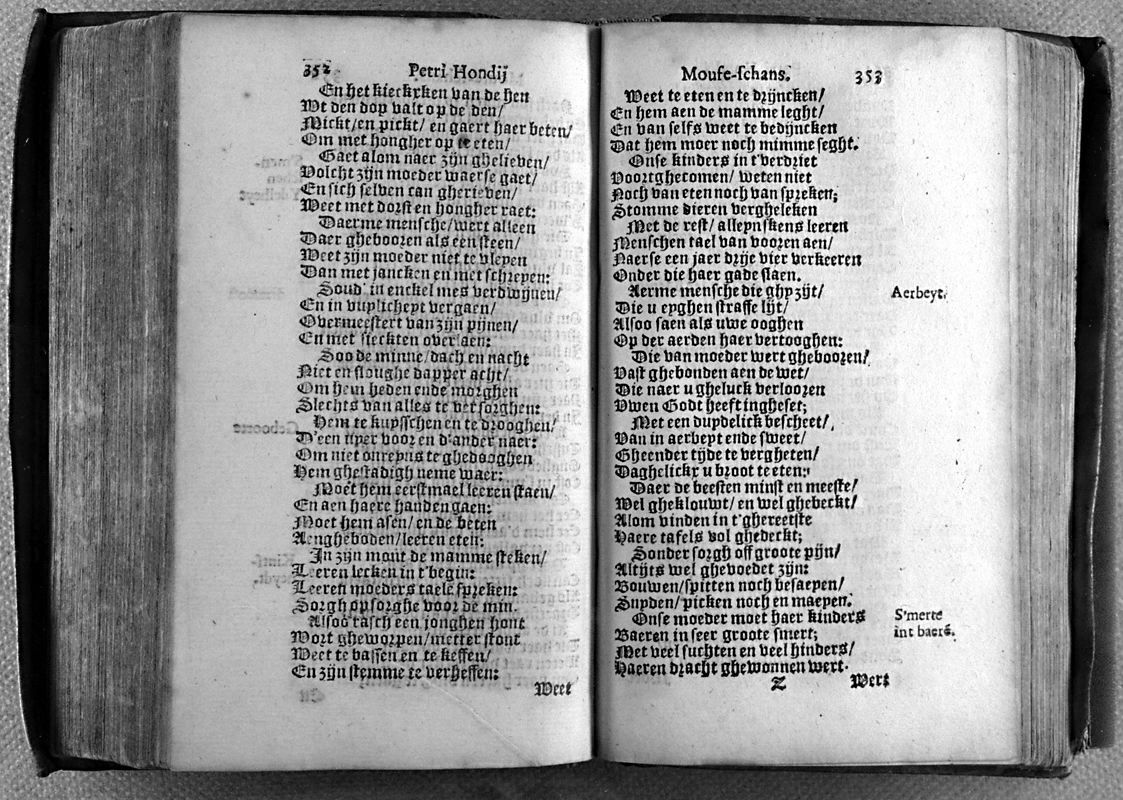 352 Petri Hondij
En het kieckxken van de hen
Wt den dop valt op de den/
Mickt/en pickt/ en gaert haer beten/
Om met hongher op te eten/
Gaet alom naer zijn ghelieven/
Volcht zijn moeder waerse gaet/
En sich selven can gherieven/
Weet met dorst en hongher raet:
Daerme mensche/wert alleen
Daer ghebooren als een steen/
Weet zijn moeder niet te vleyen
Dan met jancken en met schreyen:
Soud' in enckel mes verdwijnen/
En in vuylicheyt vergaen/
Overmeestert van zijn pijnen/
En met sieckten overlaen:
Soo de minne/dach en nacht
Niet en sloughe dapper acht/
Om hem heden ende morghen
Slechts van alles te versorghen:
Hem te kuysschen en te drooghen/
D'een uyer voor en d'ander naer:
Om niet onreyns te ghedooghen
Hem ghestadigh neme waer:
Moet hem eerstmael leeren staen/
En aen haere handen gaen:
Moet hem asen/ en de beten
Aengheboden/leeren eten:
In zijn mont de mamme steken/
Leeren lecken in t'begin:
Leeren moeders taele spreken:
Sorgh opsorghe voor de min.
Alsoo rasch een jonghen hont
Wort gheworpen/metter stont
Weet te bassen en te keffen/
En zijn stemme te verheffen:
Weet
Mouse-schans. 353
Weet te eten en te drijncken/
En hem aen de mamme leght/
En van selfs weet te bedijncken
Dat hem moer noch mimme seght.
Onse kinders in t'verdriet
Voortghecomen/ weten niet
Noch van eten noch van spreken;
Stomme dieren vergheleken
Met de rest/ alleynskens leeren
Menschen tael van vooren aen/
Naerse een jaer drije vier verkeeren
Onder die haer gade slaen.
Aerme mensche die ghy zijt/
Aerbeyt.
Die u eyghen straffe lijt/
Alsoo saen als uwe ooghen
Op der aerden haer vertooghen:
Die van moeder wert ghebooren/
Vast ghebonden aen de wet/
Die naer u gheluck verlooren
Vwen Godt heeft ingheset;
Met een duydelick bescheet/
Van in aerbeyt ende sweet/
Gheender tijde te vergheten/
Daghelickx u broot te eten:
Daer de beesten minst en meeste/
Wel gheklouwt/ en wel ghebeckt/
Alom vinden in t'ghereetste
Haere tafels vol ghedeckt;
Sonder sorgh off groote pijn/
Altijts wel ghevoedet zijn:
Bouwen/spitten noch besaeyen/
Snyden/picken noch en maeyen.
Onse moeder moet haer kinders
S'merte
int baerē.
Baeren in seer groote smert;
Met veel suchten en veel hinders/
Haeren dracht ghewonnen wert.
Z Wert